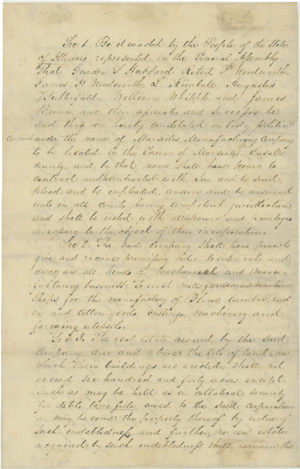 Sec 1. Be it enacted by the People of the State
of Illinois represented in the General Assembly
That, Gurdon S Hubbard, Robert P. Wentworth,
James P. Wentworth, L. Kimball, Augustus
Butterfield, William Whipple and James
and their associates and successors be
and they are hereby constituted a body politic &
corporate under the name of Marseilles Manufacturing Company
to be located in the Town of Marseilles, Lasalle
County, and by that name shall have power to
contract and be contracted with, sue and be sued,
plead and be impleaded, answer and be answered
unto in all courts having competent jurisdiction
and shall be vested with all powers and privileges
necessary to the object of their incorporation.
Sec 2. The said Company shall have power to
give and receive promissory notes, to enter into and
carry on all kinds of mechanical and manu-
facturing business, to erect mills, furnaces, machine
shops for the manufactory of flour, lumber, wool-
en and cotton goods, castings, machinery and
farming utensils.
Sec 3. The real estate owned by the said
company, over and above the lots of land, on
which their buildings are erected, shall not
exceed six hundred and forty acres, except
such as may be held as collateral security
for debts bona fide owed to the said corporation
or may become the property thereof by
such indebtedness, and further, no real estate
acquired by such indebtedness shall remain the